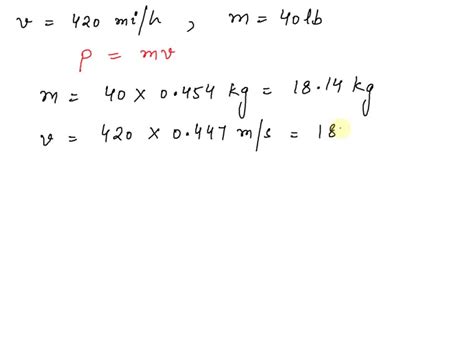 v = 420 mi/h , m = 40 lb
p = mv
m = 40 × 0.454 kg = 18.14 kg
v = 420 × 0.447 m/s = 18